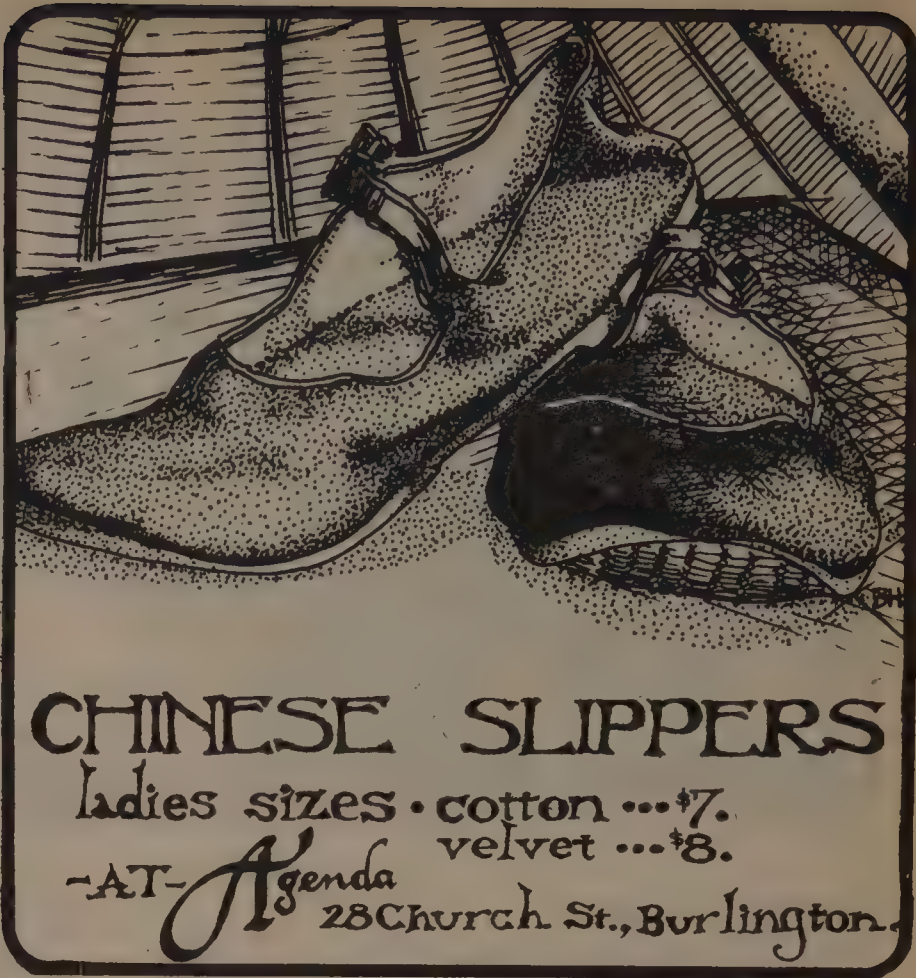 BH
CHINESE SLIPPERS
ladies sizes • cotton •••$7.
velvet •••$8.
-AT- A'genda
28 Church St., Burlington.